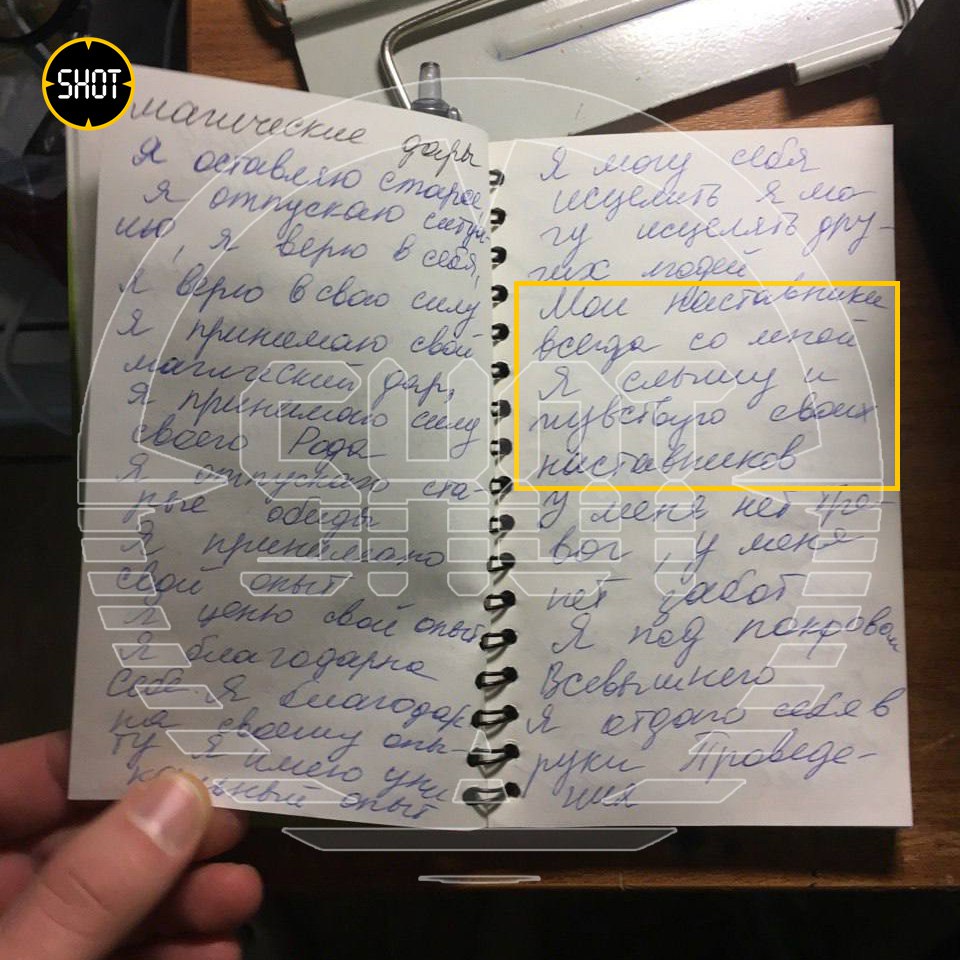 SHOT
магические дары
Я оставляю старое
Я отпускаю ситуа-
цию, Я верю в себя,
Я верю в свою силу
Я принимаю свой
магический дар,
Я принимаю силу
своего Рода
Я отпускаю ста-
рые обиды
Я принимаю
свой опыт
Я ценю свой опыт
Я благодарна
Себе. Я благодар
на своему опы-
ту Я имею уни
кальный опыт
Я могу себя
исцелить Я мо-
гу исцелять дру-
гих людей
Мои наставники
всегда со мной
Я слышу и
чувствую своих
наставников
У меня нет тре-
вог, у меня
нет забот
Я под покровом
Всевышнего
Я отдаю себя в
руки Проведе-
ния